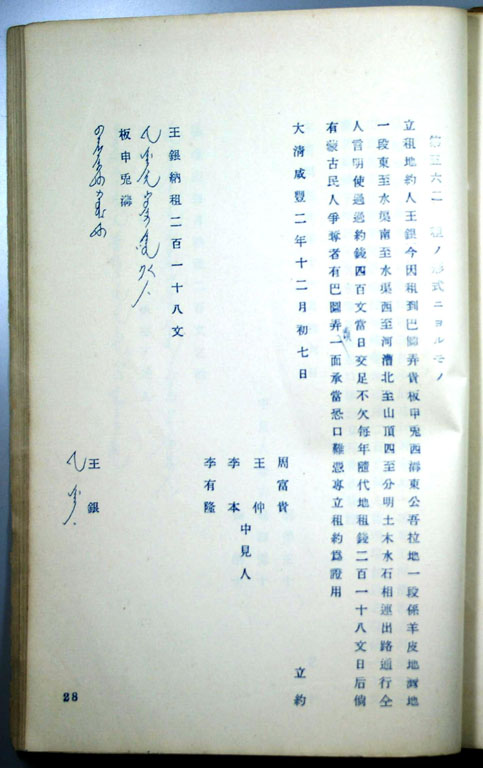 租ノ形式ニヨルモノ
立租地約人王銀今因租到巴圖弄貴板申兎西溝東公吾拉地一段係羊皮地溝地
一段東至水渠南至水渠西至河漕北至山頂四至分明土木水石相連出路通行仝
人言明使過過約錢四百文當日交足不欠每年隨代地租錢二百一十八文日后倘
有蒙古民人爭奪者有巴圖弄一面承當恐口難憑專立租約爲證用
大清咸豐二年十二月初七日 立約
周富貴
王仲
李本 中見人
李有隆
王銀納租二百一十八文
板申兎溝
王銀
28